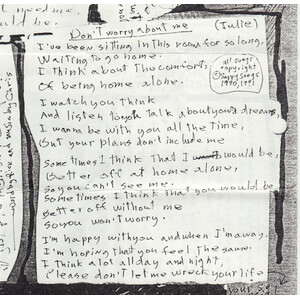 could be.
Don't worry about me
(Julie)
I've been sitting in this room for so long,
Waiting to go home.
I think about the comfort,
Of being home alone.
all songs
copyright
© Songs
1990, 1991
I watch you think
And listen to you talk about your dreams,
I wanna be with you all the time,
But your plans don't include me
Sometimes I think that I would be,
Better off at home alone,
so you can't see me.
Sometimes I think that you would be
Better off without me
So you won't worry.
I'm happy with you and when I'm away,
I'm hoping that you feel the same.
I think a lot all day and night,
Please don't let me wreck your life
words and music by Chris